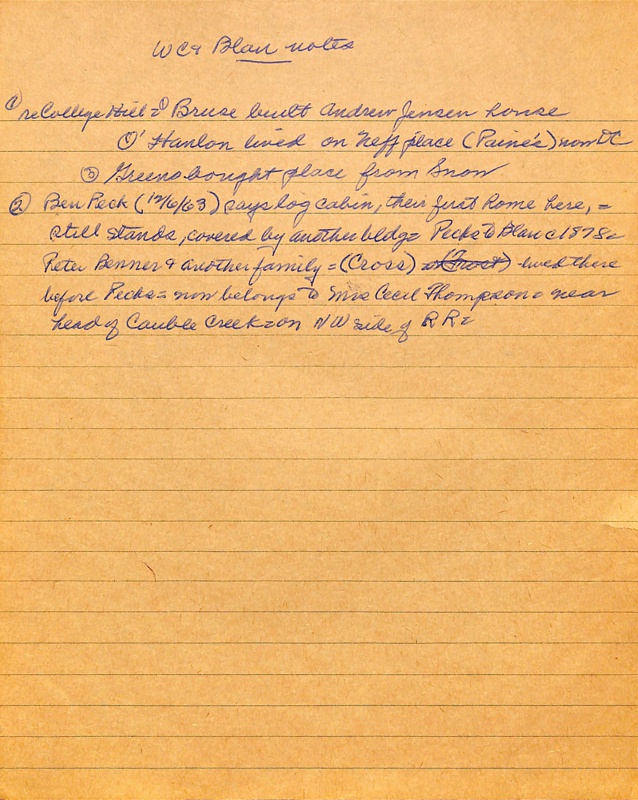 WC & Blan notes
① re College Hill = ① Bruse built Andrew Jensen house
O'Hanlon lived on Neff place (Paine's) now DC
③ Greens bought place from Snow
② Ben Peck (12/6/63) says log cabin, their first home here, =
still stands, covered by another bldg = Pecks to Blan c 1878 =
Peter Benner & another family = (Cross) lived there
before Pecks = now belongs to Mrs Cecil Thompson = near
head of Cauble Creek = on NW side of RR =